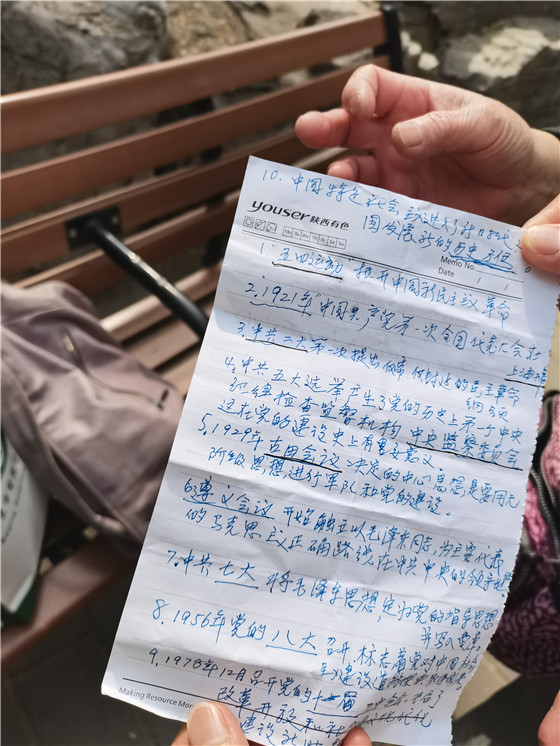 10. 中国特色社会主义进入新时代
国发展新的历史方位。
youser 陕西有色
Mo Tu We Th Fr Sa Su
Memo No.
Date / /
1."五四运动" 拉开中国新民主主义革命
2.1921年"中国共产党第一次全国代表大会在
上海
3.中共二大第一次提出彻底的民主革命
纲领
4.中共五大选举产生了党的历史上第一个中央
纪律检查监督机构 中央监察委员会
这在党的建设史上有重要意义。
5.1929年古田会议 决定的中心思想是要用无
阶级思想进行军队和党的建设。
6遵义会议 开始确立以毛泽东同志为主要代表
的马克思主义正确路线在中共中央的领导地位
7.中共七大 将毛泽东思想定为党的指导思想
并写入党章
8.1956年党的八大召开,标志着党对中国
主义建设道路
9.1978年12月召开党的十一届
改革开放和
建设
Making Resource Mor